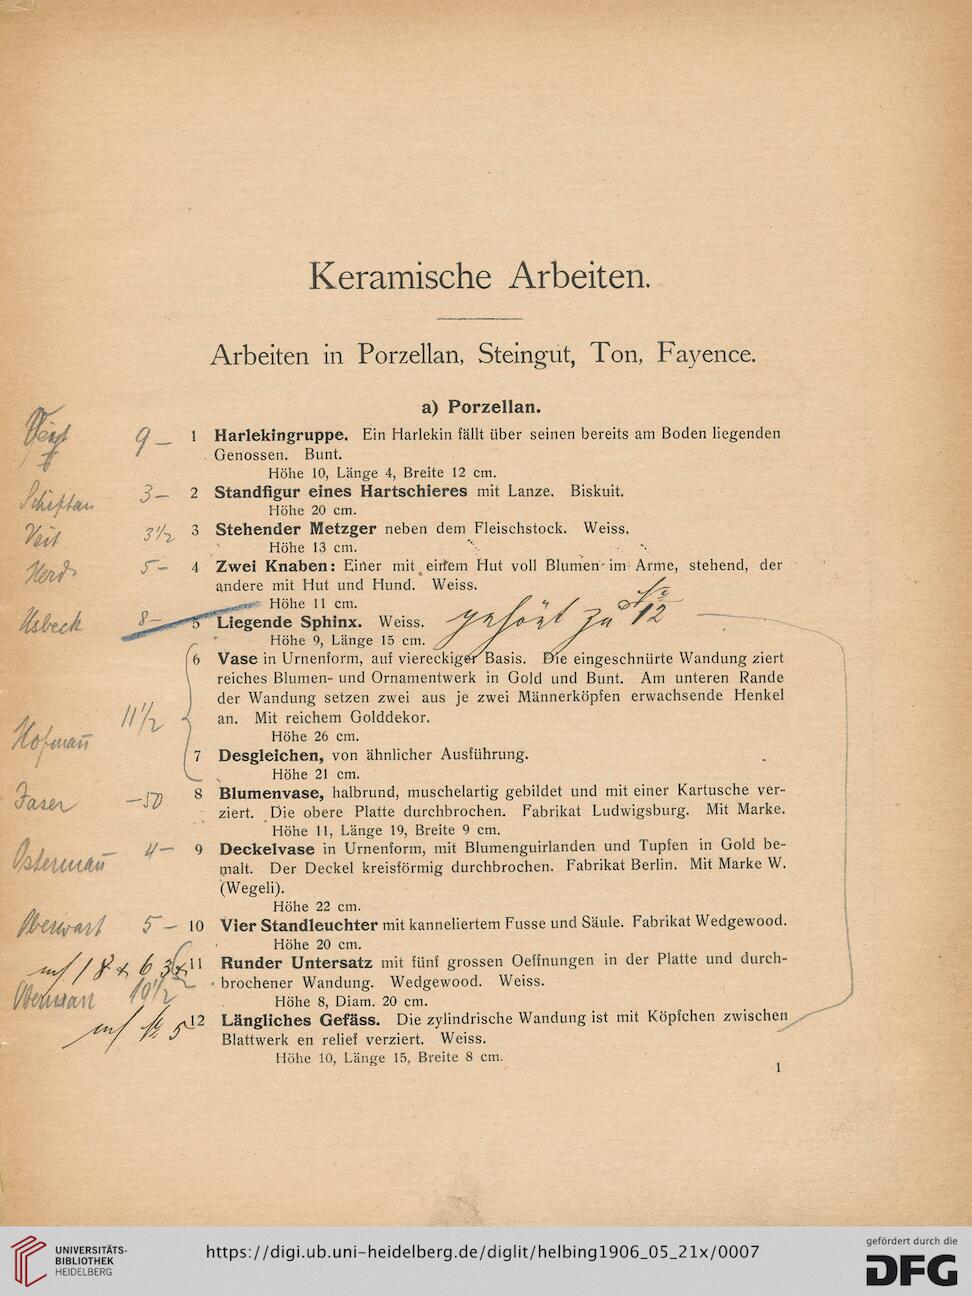 Keramische Arbeiten.
Arbeiten in Porzellan, Steingut, Ton, Fayence.
a) Porzellan.
9 — 1 Harlekingruppe. Ein Harlekin fällt über seinen bereits am Boden liegenden
Genossen. Bunt.
Höhe 10, Länge 4, Breite 12 cm.
3 — 2 Standfigur eines Hartschieres mit Lanze. Biskuit.
Höhe 20 cm.
Veit 3 1/2 3 Stehender Metzger neben dem Fleischstock. Weiss.
Höhe 13 cm.
5 — 4 Zwei Knaben: Einer mit einem Hut voll Blumen im Arme, stehend, der
andere mit Hut und Hund. Weiss.
Höhe 11 cm.
Usbeck 8 — 5 Liegende Sphinx. Weiss. gehört zu No 12
Höhe 9, Länge 15 cm.
6 Vase in Urnenform, auf viereckiger Basis. Die eingeschnürte Wandung ziert
reiches Blumen- und Ornamentwerk in Gold und Bunt. Am unteren Rande
der Wandung setzen zwei aus je zwei Männerköpfen erwachsende Henkel
an. Mit reichem Golddekor.
Höhe 26 cm.
Hofmañ 11 1/2
7 Desgleichen, von ähnlicher Ausführung.
Höhe 21 cm.
Faser —50 8 Blumenvase, halbrund, muschelartig gebildet und mit einer Kartusche ver-
ziert. Die obere Platte durchbrochen. Fabrikat Ludwigsburg. Mit Marke.
Höhe 11, Länge 19, Breite 9 cm.
Ostermañ 4 — 9 Deckelvase in Urnenform, mit Blumenguirlanden und Tupfen in Gold be-
malt. Der Deckel kreisförmig durchbrochen. Fabrikat Berlin. Mit Marke W.
(Wegeli).
Höhe 22 cm.
5 — 10 Vier Standleuchter mit kanneliertem Fusse und Säule. Fabrikat Wedgewood.
Höhe 20 cm.
11 Runder Untersatz mit fünf grossen Oeffnungen in der Platte und durch-
19 1/2 brochener Wandung. Wedgewood. Weiss.
Höhe 8, Diam. 20 cm.
No 5 12 Längliches Gefäss. Die zylindrische Wandung ist mit Köpfchen zwischen
Blattwerk en relief verziert. Weiss.
Höhe 10, Länge 15, Breite 8 cm.
1
UNIVERSITÄTS-
BIBLIOTHEK
HEIDELBERG
https://digi.ub.uni-heidelberg.de/diglit/helbing1906_05_21x/0007
gefördert durch die
DFG